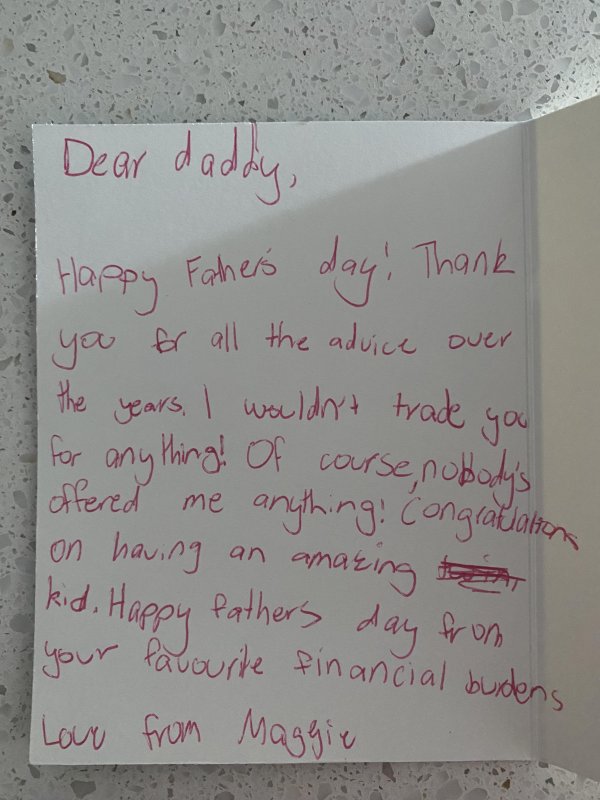 Dear daddy,
Happy Father's day! Thank
you for all the advice over
the years. I wouldn't trade you
for anything! Of course, nobody's
offered me anything! Congratulations
on having an amazing
kid. Happy fathers day from
your favourite financial burdens
Love from Maggie